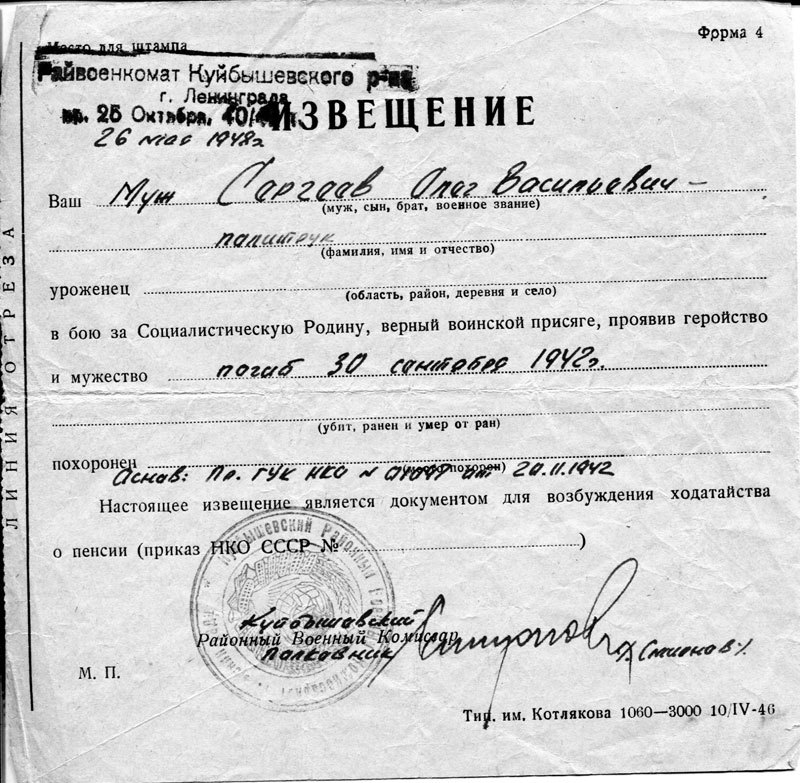 Форма 4
Место для штампа
Райвоенкомат Куйбышевского р-на
г. Ленинграда
пр. 25 Октября, 40/
ИЗВЕЩЕНИЕ
26 мая 1948г
Ваш Муж Саргаев Олег Васильевич –
(муж, сын, брат, военное звание)
политрук
(фамилия, имя и отчество)
уроженец
(область, район, деревня и село)
в бою за Социалистическую Родину, верный воинской присяге, проявив геройство
и мужество погиб 30 сентября 1942г.
(убит, ранен и умер от ран)
похоронен
Основ: Пр. ГУК НКО N от 20.11.1942
Настоящее извещение является документом для возбуждения ходатайства
о пенсии (приказ НКО СССР № )
Куйбышевский
Районный Военный Комиссар
Полковник
/Смирнов/.
М. П.
Тип. им. Котлякова 1060—3000 10/IV-46
ЛИНИЯ ОТРЕЗА